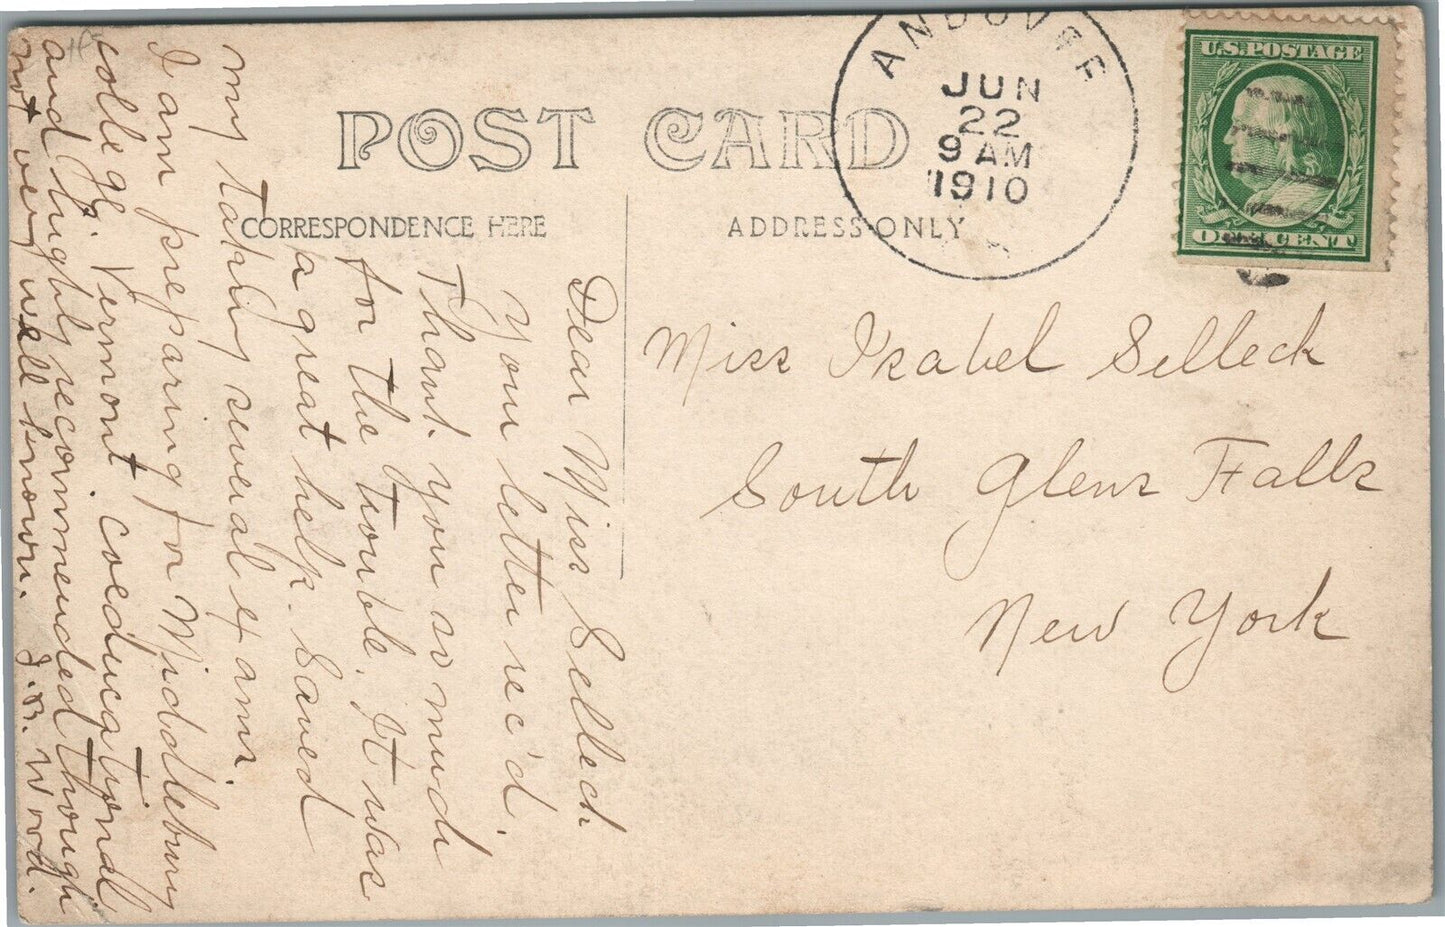 POST CARD
CORRESPONDENCE HERE
ADDRESS ONLY
ANDOVER
JUN
22
9 AM
1910
U.S. POSTAGE
ONE CENT
Miss Isabel Selleck
South Glens Falls
New York
Dear Miss Selleck
Your letter rec'd.
Thank you so much
for the trouble. It was
a great help. Saved
my taking several exams.
I am preparing for Middlebury
college. Vermont coeducational
and highly recommended though
not very well known. J. B. Wood.